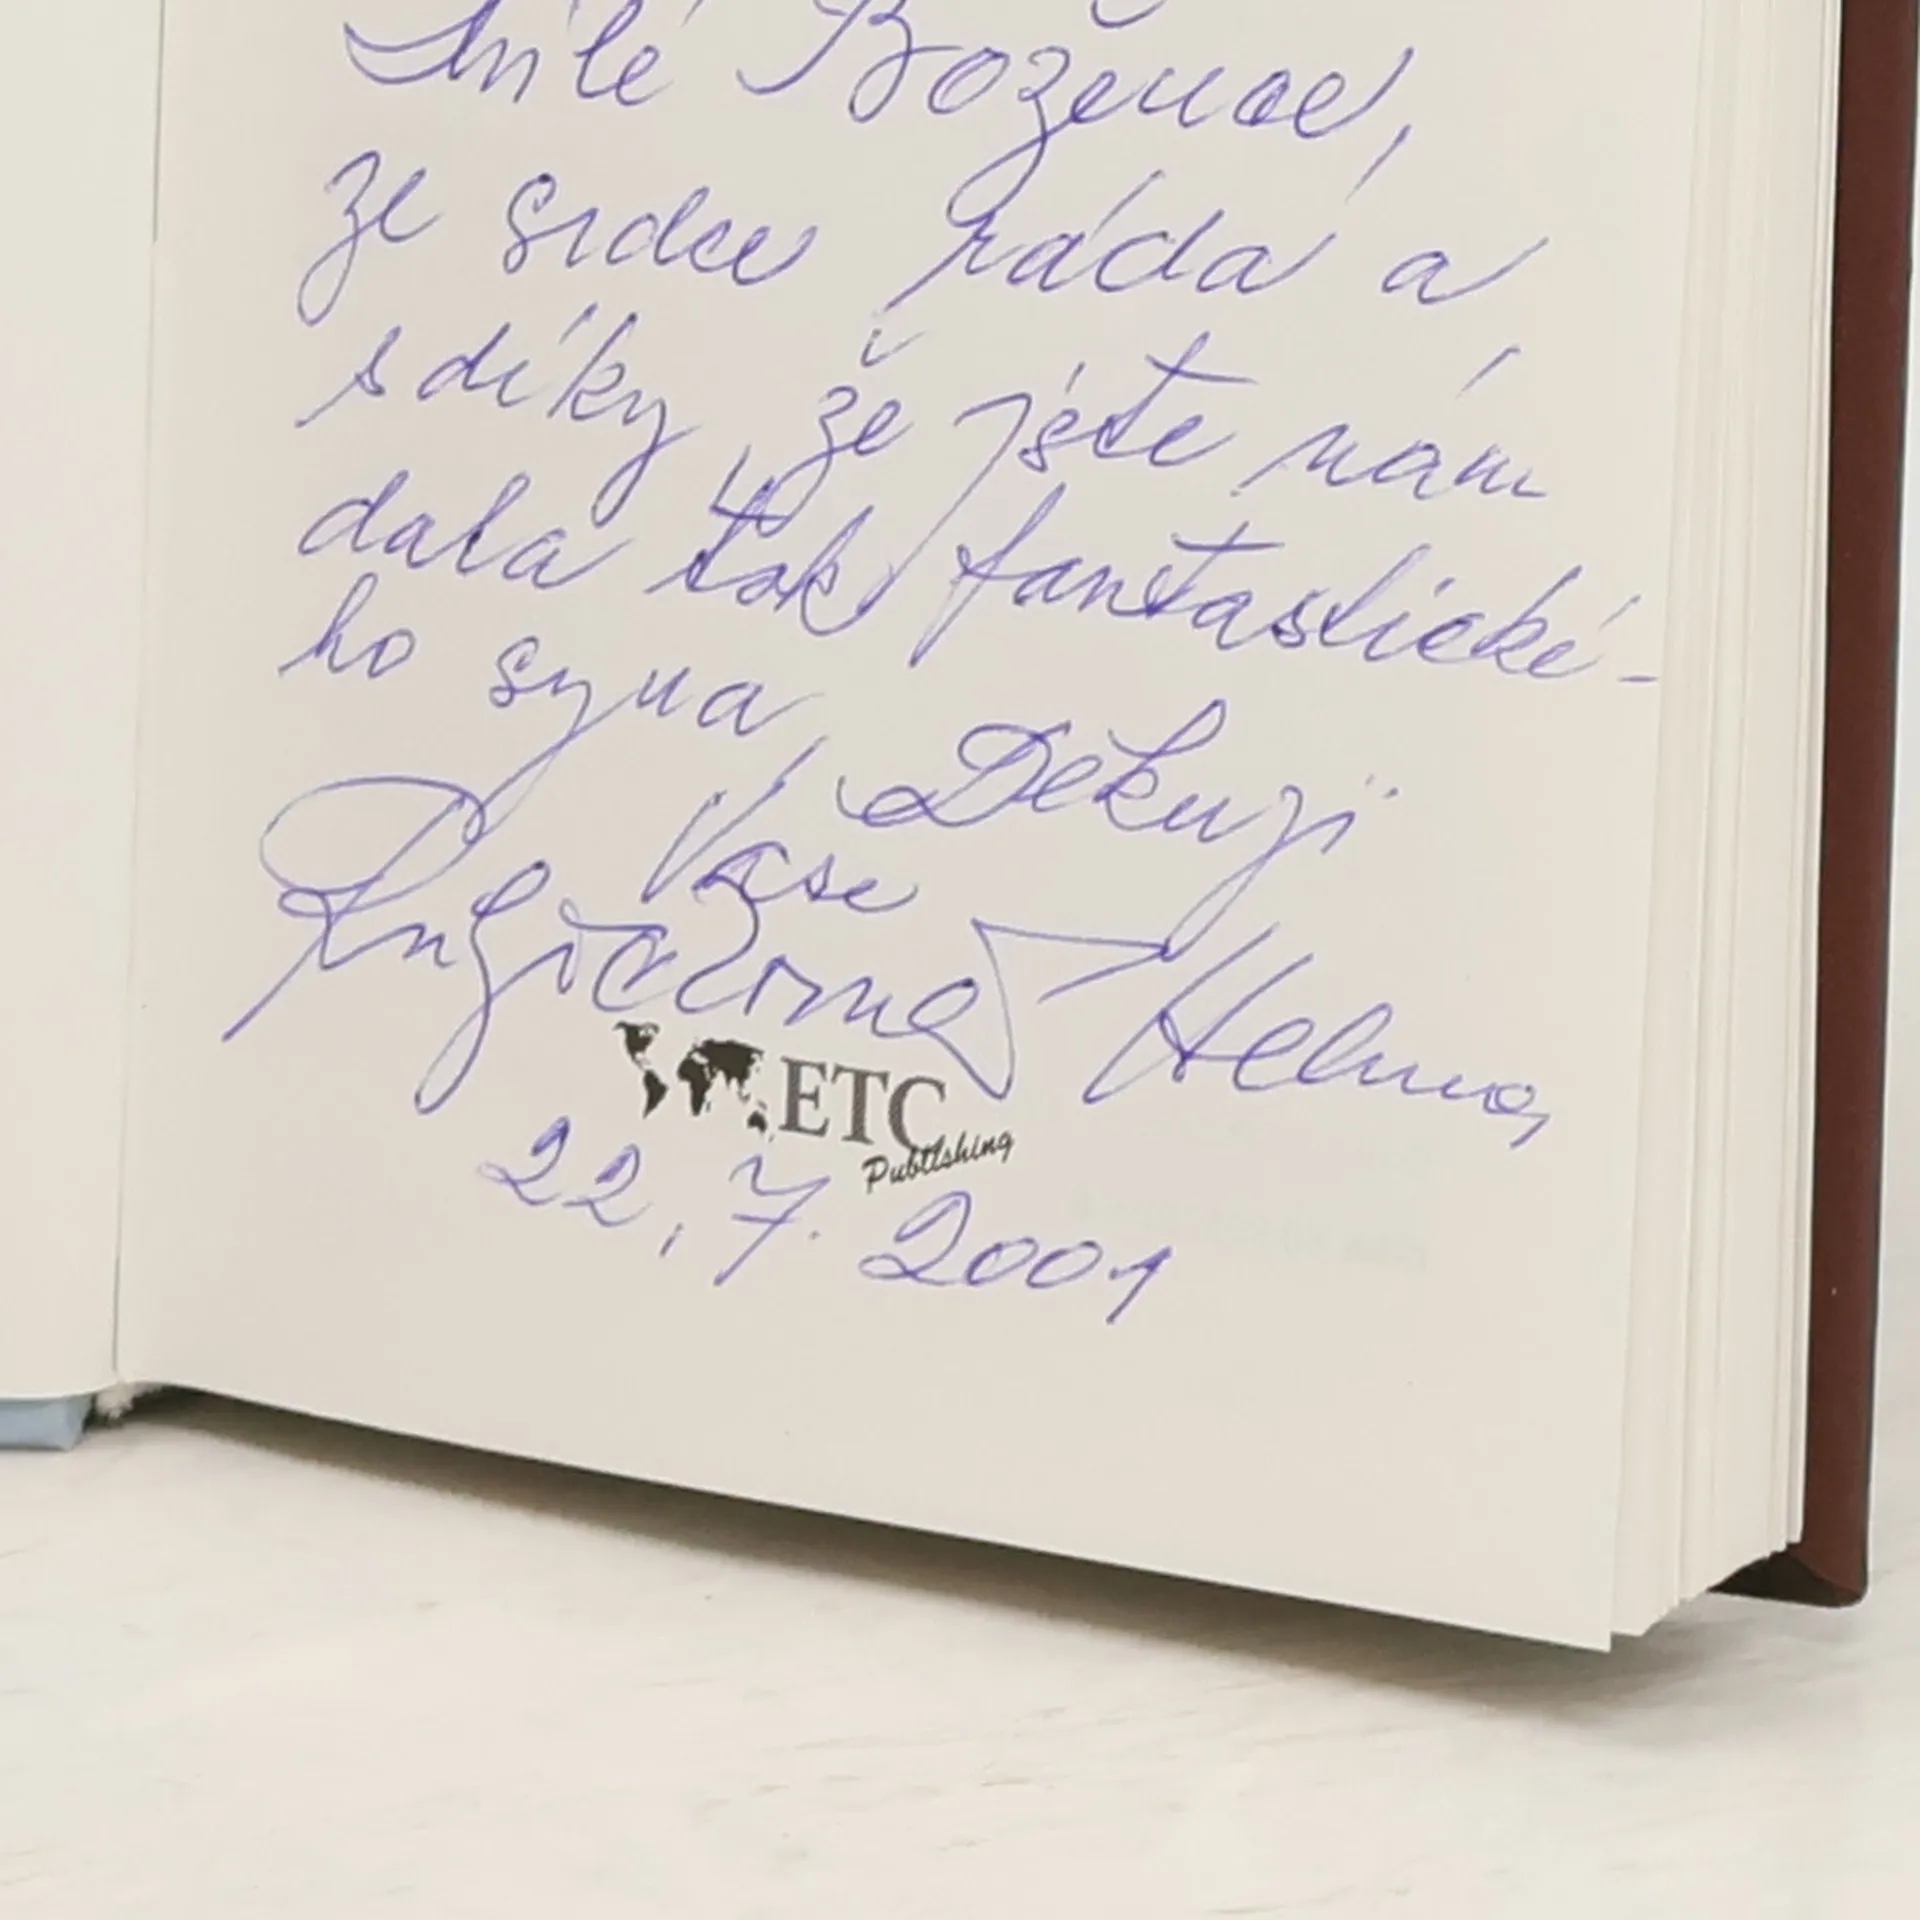 Milé Božence,
ze srdce ráda a
s díky, že jste nám
dala tak fantastické-
ho syna, Děkuji
Vaše
Helena
ETC
Publishing
22. 7. 2001